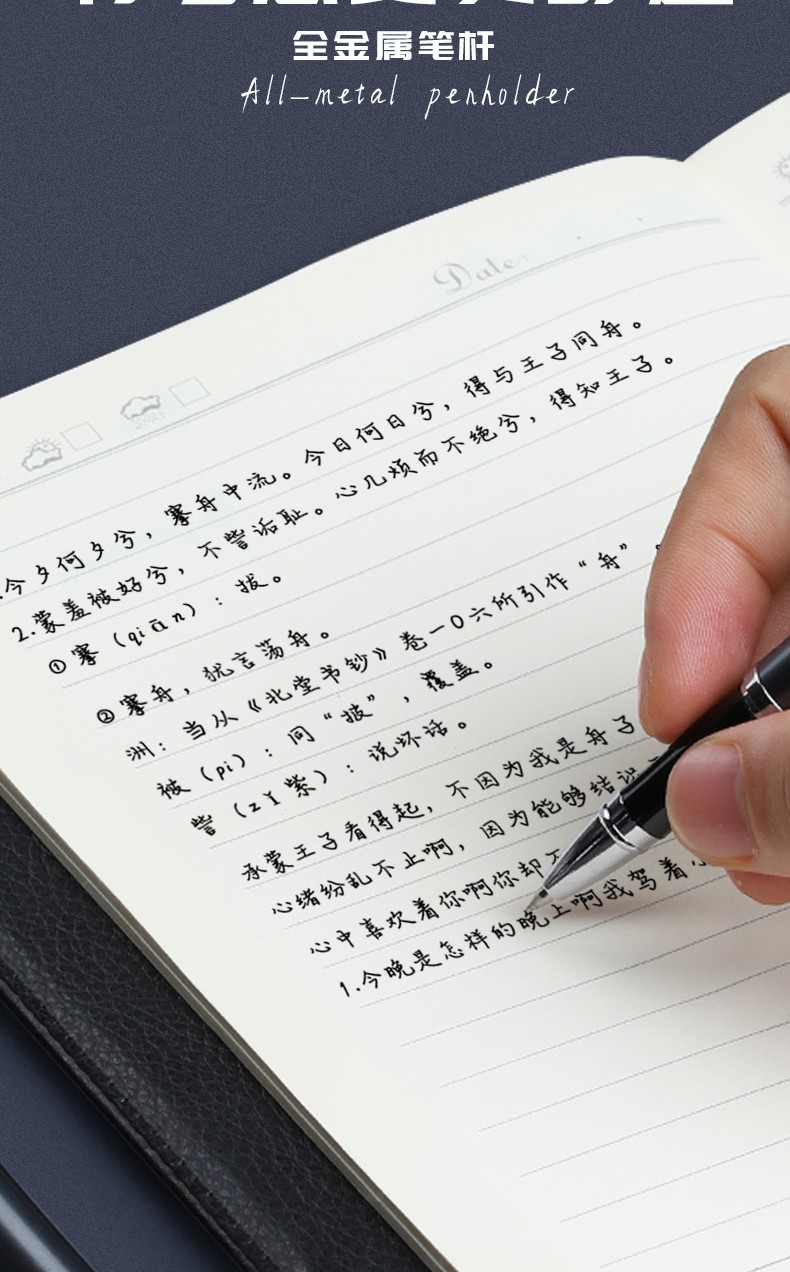 全金属笔杆
All-metal penholder
Date:
今夕何夕兮，搴舟中流。今日何日兮，得与王子同舟。
2.蒙羞被好兮，不訾诟耻。心几烦而不绝兮，得知王子。
①搴（qiān）：拔。
②搴舟，犹言荡舟。
洲：当从《北堂书钞》卷一0六所引作“舟”。
被（pi）：同“披”，覆盖。
訾（zǐ紫）：说坏话。
承蒙王子看得起，不因为我是舟子
心绪纷乱不止啊，因为能够结识
心中喜欢着你啊你却不
1.今晚是怎样的晚上啊我驾着小